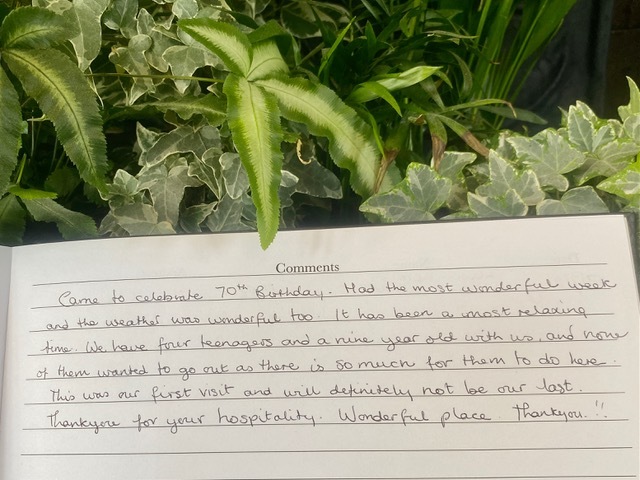 Comments
Came to celebrate 70th Birthday. Had the most wonderful week
and the weather was wonderful too. It has been a most relaxing
time. We have four teenagers and a nine year old with us, and none
of them wanted to go out as there is so much for them to do here.
This was our first visit and will definitely not be our last.
Thankyou for your hospitality. Wonderful place. Thankyou.!!